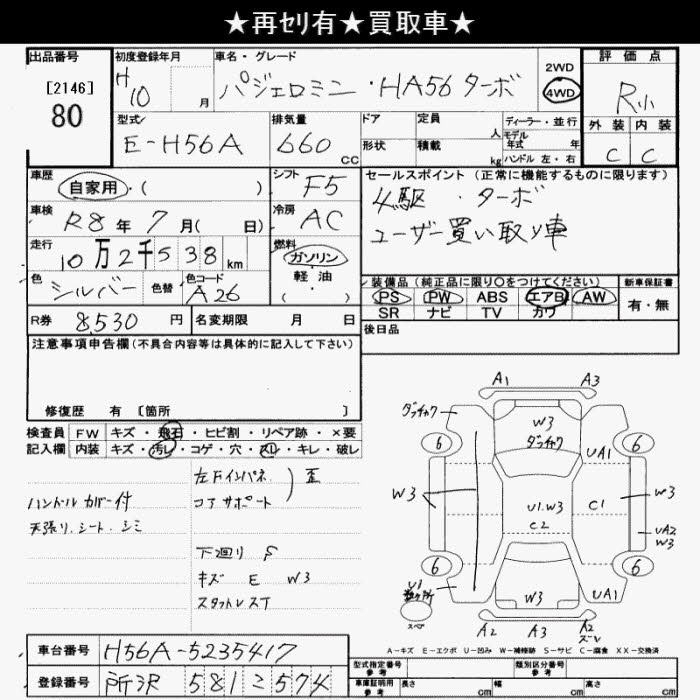 ★再セリ有★買取車★
出品番号
[2146]
80
初度登録年月
H10 月
車名・グレード
パジェロミニ・HA56 ターボ
2WD
4WD
評価点
R小
外装 内装
C C
型式
E-H56A
排気量
660 cc
ドア
形状
定員 人
積載 kg
ディーラー・並行
モデル年式 年
ハンドル 左・右
車歴
自家用・( )
シフト F5
セールスポイント (正常に機能するものに限ります)
4駆・ターボ
ユーザー買い取り車
車検
R8年7月( 日)
冷房 AC
走行
10万2千538km
燃料
ガソリン
軽・油
・( )
色 シルバー
色替
色コード A26
装備品 (純正品に限り〇をつけてください)
PS PW ABS エアB AW
SR ナビ TV カワ
新車保証書
有・無
R券 8,530 円
名変期限 月 日
後日品
注意事項申告欄(不具合内容等は具体的に記入して下さい)
修復歴 有 [箇所 ]
検査員記入欄
FW キズ・飛石・ヒビ割・リペア跡・×要
内装 キズ・汚レ・コゲ・穴・スレ・キレ・破レ
左Fインパネ
コアサポート
歪
ハンドルカバー付
天張り、シート、シミ
下回り S
キズ E W3
スタットレスT
A1 A3
W3
6 6
UA1
W3
U1.W3
C2
C1
W3
UA2
W3
6 6
U1
W3
UA1
スペア
A2 A3 A2
A-キズ E-エクボ U-凹み W-補修跡 S-サビ C-腐食 XX-交換済
車台番号 H56A-5235417
登録番号 所沢 581 こ 574
型式指定番号 参考
類別区分番号 参考
車庫証明用 参考
長さ cm 幅 cm 高さ cm